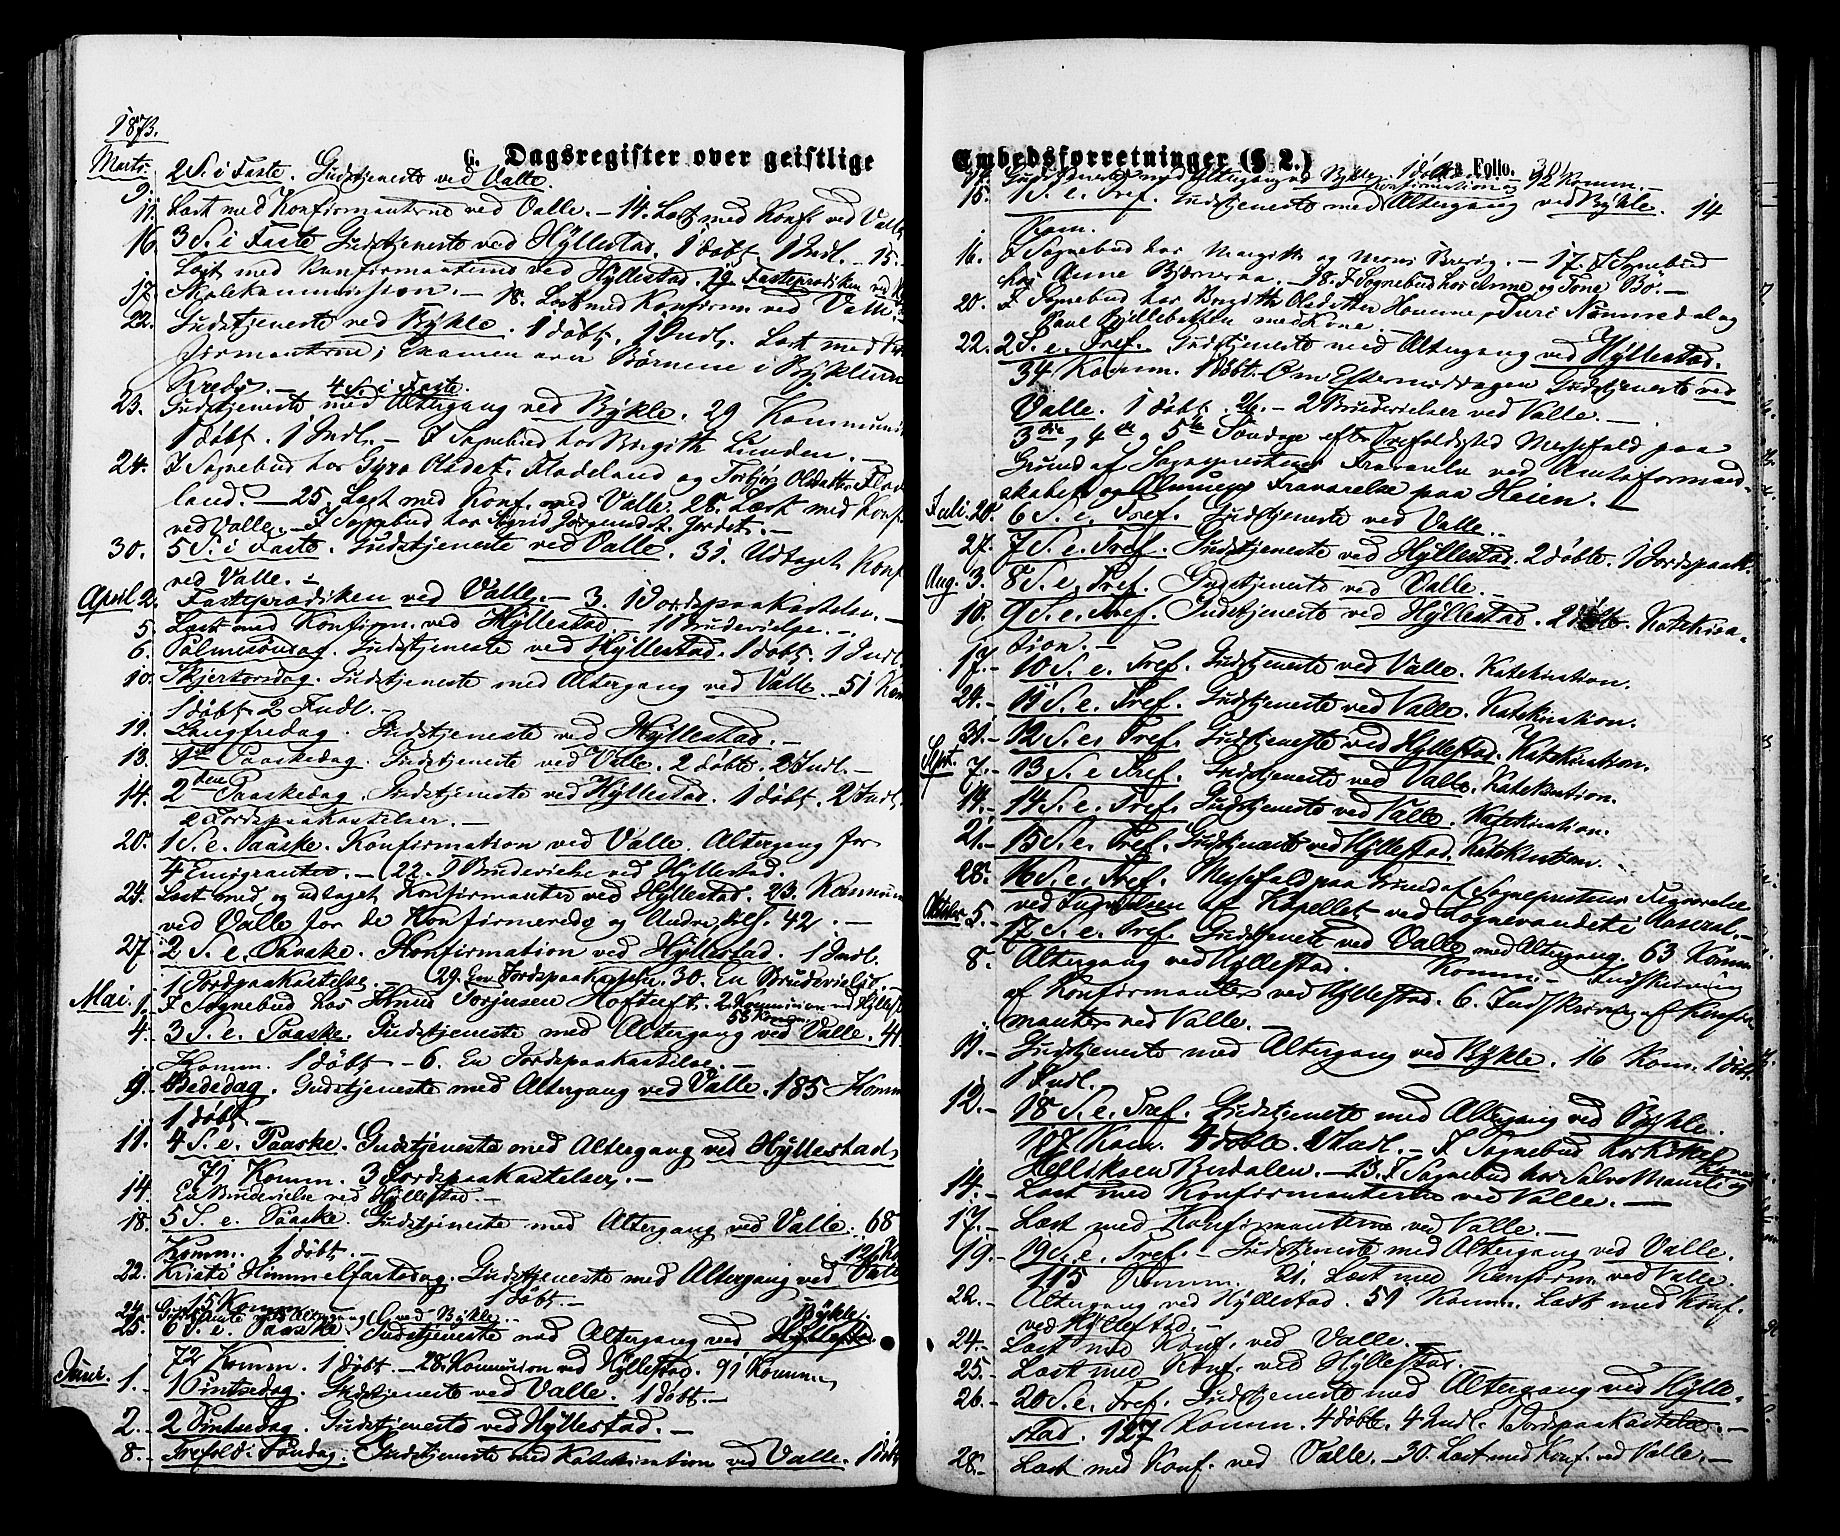 1873.
G. Dagsregister over geistlige
Marts 9. 2 S. i Faste. Gudstjeneste ved Valle.
11. Læst med Konfirmanterne ved Valle. – 14. Læst med Konf. ved Valle
16. 3 S. i Faste Gudstjeneste ved Hyllestad. 1 døbt 1 Indl. – 15. –
Læst med Konfirmanterne ved Hyllestad. 19. Fasteprædiken ved
17. Skolekommission. – 18. Læst med Konfirm. ved Valle.
22. Gudstjeneste ved Bykle. 1 døbt. 1 Indl. Læst med
firmanterne; Examen over Børnene i Byklum
Kreds. – 4 S. i Faste.
23. Gudstjeneste med Altergang ved Bykle. 29 Kommuni
1 døbt. 1 Indl. – I Sognebud hos Birgith Lunden. –
24. I Sognebud hos Gyro Olsdat. Fladeland og Torbjør Olsdatter Flade
land. – 25. Læst med Konf. ved Valle. 28. Læst med Konf.
ved Valle. – I Sognebud hos Sigrid Jørgensdt. Jordet. –
30. 5 S. i Faste. Gudstjeneste ved Valle. 31. Udtaget Konf
ved Valle. –
April 2. Fasteprædiken ved Valle. – 3. 1 Jordspaakastelse. –
5. Læst med Konfirm. ved Hyllestad – 1 Brudevielse. –
6. Palmesøndag. Gudstjeneste ved Hyllestad. 1 døbt. 1 Indl.
10. Skjertorsdag. Gudstjeneste med Altergang ved Valle. 51 Kom
1 døbt. 2 Indl. –
11. Langfredag. Gudstjeneste ved Hyllestad. –
13. 1ste Paaskedag. Gudstjeneste ved Valle. 2 døbte. 2 Indl. –
14. 2den Paaskedag. Gudstjeneste ved Hyllestad. 1 døbt. 2 Indl.
2 Jordspaakastelser. –
20. 1 S. e. Paaske. Konfirmation ved Valle. Altergang for
4 Emigranter. – (22. 1 Brudevielse ved Hyllestad.
24. Læst med og udtaget Konfirmanter ved Hyllestad. 23. Kommun
ved Valle for de Konfirmerede og Andre, 42. –
27. 2 S. e. Paaske. Konfirmation ved Hyllestad. 1 Indl.
1 Jordspaakastelse. (29. En Jordspaakastelse. 30. En Brudevielse.
Mai. 1. I Sognebud hos Knud Torjusen Hoftuft. 2. Kommunion ved Hyllest
55 Komm.
4. 3 S. e. Paaske. Gudstjeneste med Altergang ved Valle. 41
Komm. 1 døbt. – 6. En Jordspaakastelse. –
9. Bededag. Gudstjeneste med Altergang ved Valle. 185 Komm
1 døbt. –
11. 4 S. e. Paaske. Gudstjeneste med Altergang ved Hyllestad
71 Komm. 3 Jordspaakastelser. –
14. En Brudevielse ved Hyllestad. –
18. 5 S. e. Paaske. Gudstjeneste med Altergang ved Valle. 68
Komm. 1 døbt. –
22. Kristi Himmelfartsdag. Gudstjeneste med Altergang ved Valle
1 døbt. –
24. Gudstjeneste med Altergang ved Bykle. – 15 Komm.
25. 6 S. e. Paaske. Gudstjeneste med Altergang ved Bykle.
72 Komm. 1 døbt. – 28. Kommunion ved Hyllestad. 91 Komm.
Juni. 1. 1 Pintsedag. Gudstjeneste ved Valle. 1 døbt. –
2. 2 Pintsedag. Gudstjeneste ved Hyllestad. –
8. Trefold. Søndag. Gudstjeneste med Katekisation ved Valle. 1 døbt
Embedsforretninger (§ 2.)
Folio. 301
14. Gudstjeneste med Altergang ved Bykle. 1 døbt. 92 Komm. –
Konfirmation og
15. 1 S. e. Tref. Gudstjeneste med Altergang ved Bykle. 14
Kom.
16. I Sognebud hos Margith og Mons – 17. I Sognebud
hos Anne Bjørnaraa. – 18. I Sognebud hos Anne og Tone Bö. –
20. I Sognebud hos Birgith Olsdatter Homme, Turi Nomeland og
Paul Bjellebakken med Kone.
22. 2 S. e. Tref. Gudstjeneste med Altergang ved Hyllestad.
34 Komm. 1 døbt. Om Eftermiddagen Gudstjeneste ved
Valle. 1 døbt. 26. – 2 Brudevielser ved Valle. –
3die, 4de og 5te Søndag efter Trefoldighed Messefald paa
Grund af Sognepræstens Fraværelse ved Amtsformand-
skabet og Almuens Fraværelse paa Heien. –
Juli 20. 6 S. e. Tref. Gudstjeneste ved Valle.
27. 7 S. e. Tref. Gudstjeneste ved Hyllestad. 2 døbte. 1 Jordspaak.
Aug. 3. 8 S. e. Tref. Gudstjeneste ved Valle. –
10. 9 S. e. Tref. Gudstjeneste ved Hyllestad. 2 døbte. Katekisa-
tion. –
17. – 10 S. e. Tref. Gudstjeneste ved Valle. Katekisation.
24. – 11 S. e. Tref. Gudstjeneste ved Valle. Katekisation.
31. – 12 S. e. Tref. Gudstjeneste ved Hyllestad. Katekisation.
Sept. 7. – 13 S. e. Tref. Gudstjeneste ved Valle. Katekisation.
14. – 14 S. e. Tref. Gudstjeneste ved Valle. Katekisation.
21. – 15 S. e. Tref. Gudstjeneste ved Hyllestad. Katekisation.
28. – 16 S. e. Tref. Messefald paa Grund af Sognepræstens Fraværelse
ved Indvielsen af Kapellet ved Lognevandet i Aaseral. –
Oktober 5. – 17 S. e. Tref. Gudstjeneste ved Valle med Altergang. 63 Komm
8. Altergang ved Hyllestad. Komm. – Indskrivning
af Konfirmanter ved Hyllestad. 6. Indskrivning af Konfir
manter ved Valle. –
11. – Gudstjeneste med Altergang ved Bykle. 16 Kom. 1 døbt.
1 Indl.
12. – 18 S. e. Tref. Gudstjeneste med Altergang ved Bykle.
107 Kom. 4 døbte. Indl. – I Sognebud hos
Helliksen Berdalen. – 13. I Sognebud hos Salve
14. – Læst med Konfirmanterne ved Valle. –
17. – Læst med Konfirmanterne ved Valle. –
19. – 19 S. e. Tref. – Gudstjeneste med Altergang ved Valle.
115 Komm. 21. Læst med Konfirm. ved Valle.
22. – Altergang ved Hyllestad. 59 Komm. Læst med Konf.
ved Hyllestad. –
24. – Læst med Konf. ved Valle.
25. – Læst med Konf. ved Hyllestad.
26. – 20 S. e. Tref. Gudstjeneste med Altergang ved Hylle-
stad. 127 Komm. 4 døbte. 4 Indl. Jordspaakastelse. –
28. – Læst med Konf. ved Valle. – 30. Læst med Konf. ved Valle. –